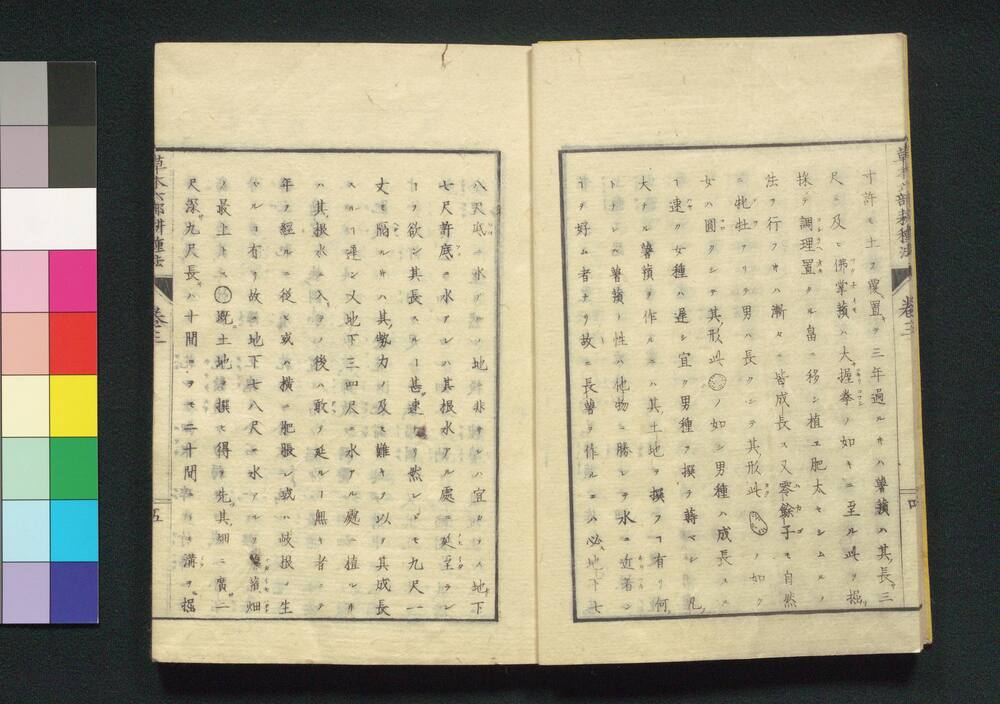 寸許モ土ヲ覆置ヲ三年過ルキハ薯蕷ハ其長三
尺ニ及ヒ佛掌蕷ハ大握拳ノ如キニ至ル此ヲ掘
採テ調理置タル畠ニ移シ植ユ肥太ヤシムルノ
法ヲ行フキハ漸々ニ皆成長ス又零餘子モ自然
ニ牝牡アリテ男ハ長クシテ其形此ノ如ク
女ハ圓クシテ其形此ノ如シ男種ハ成長ス
ー速ク女種ハ遅シ宜ク男種ヲ撰ヲ蒔ベシ凡
大ナル薯蕷ヲ作ルニハ其土地ヲ撰フヿ有リ何
トナレハ薯蕷ノ性ハ他物ニ勝レヲ水ニ近着シ
ーヲ好ム者ナリ故ニ長薯ヲ作ルニハ必地下七
八尺底ニ水アルノ地非サレハ宜カラス地下
七尺許底ニ水アレハ其根水アル處ニ延至ラン
ーヲ欲シ其長スルー甚速ナリ然レモ九尺一
丈モ隔ルキハ其勢力ノ及ヒ難キヲ以テ其成長
スルー遅シ又地下三四尺ニ水アル處ニ植ルキ
ハ其根水ニ入テノ後ハ敢テ延ルー無キ者ニテ
年ヲ經ルニ從ヒ或ハ横ニ肥脹シ或ハ岐根ノ生
スルヿ有リ故ニ地下七八尺ニ水アルヲ薯蕷畑
ノ最上トス既土地ヲ撰ヒ得ヲ先其畑ニ廣二
尺深九尺長ハ十間ニヲモ二十間ニヲモ溝ヲ掘
草木六部耕種法
卷三
五